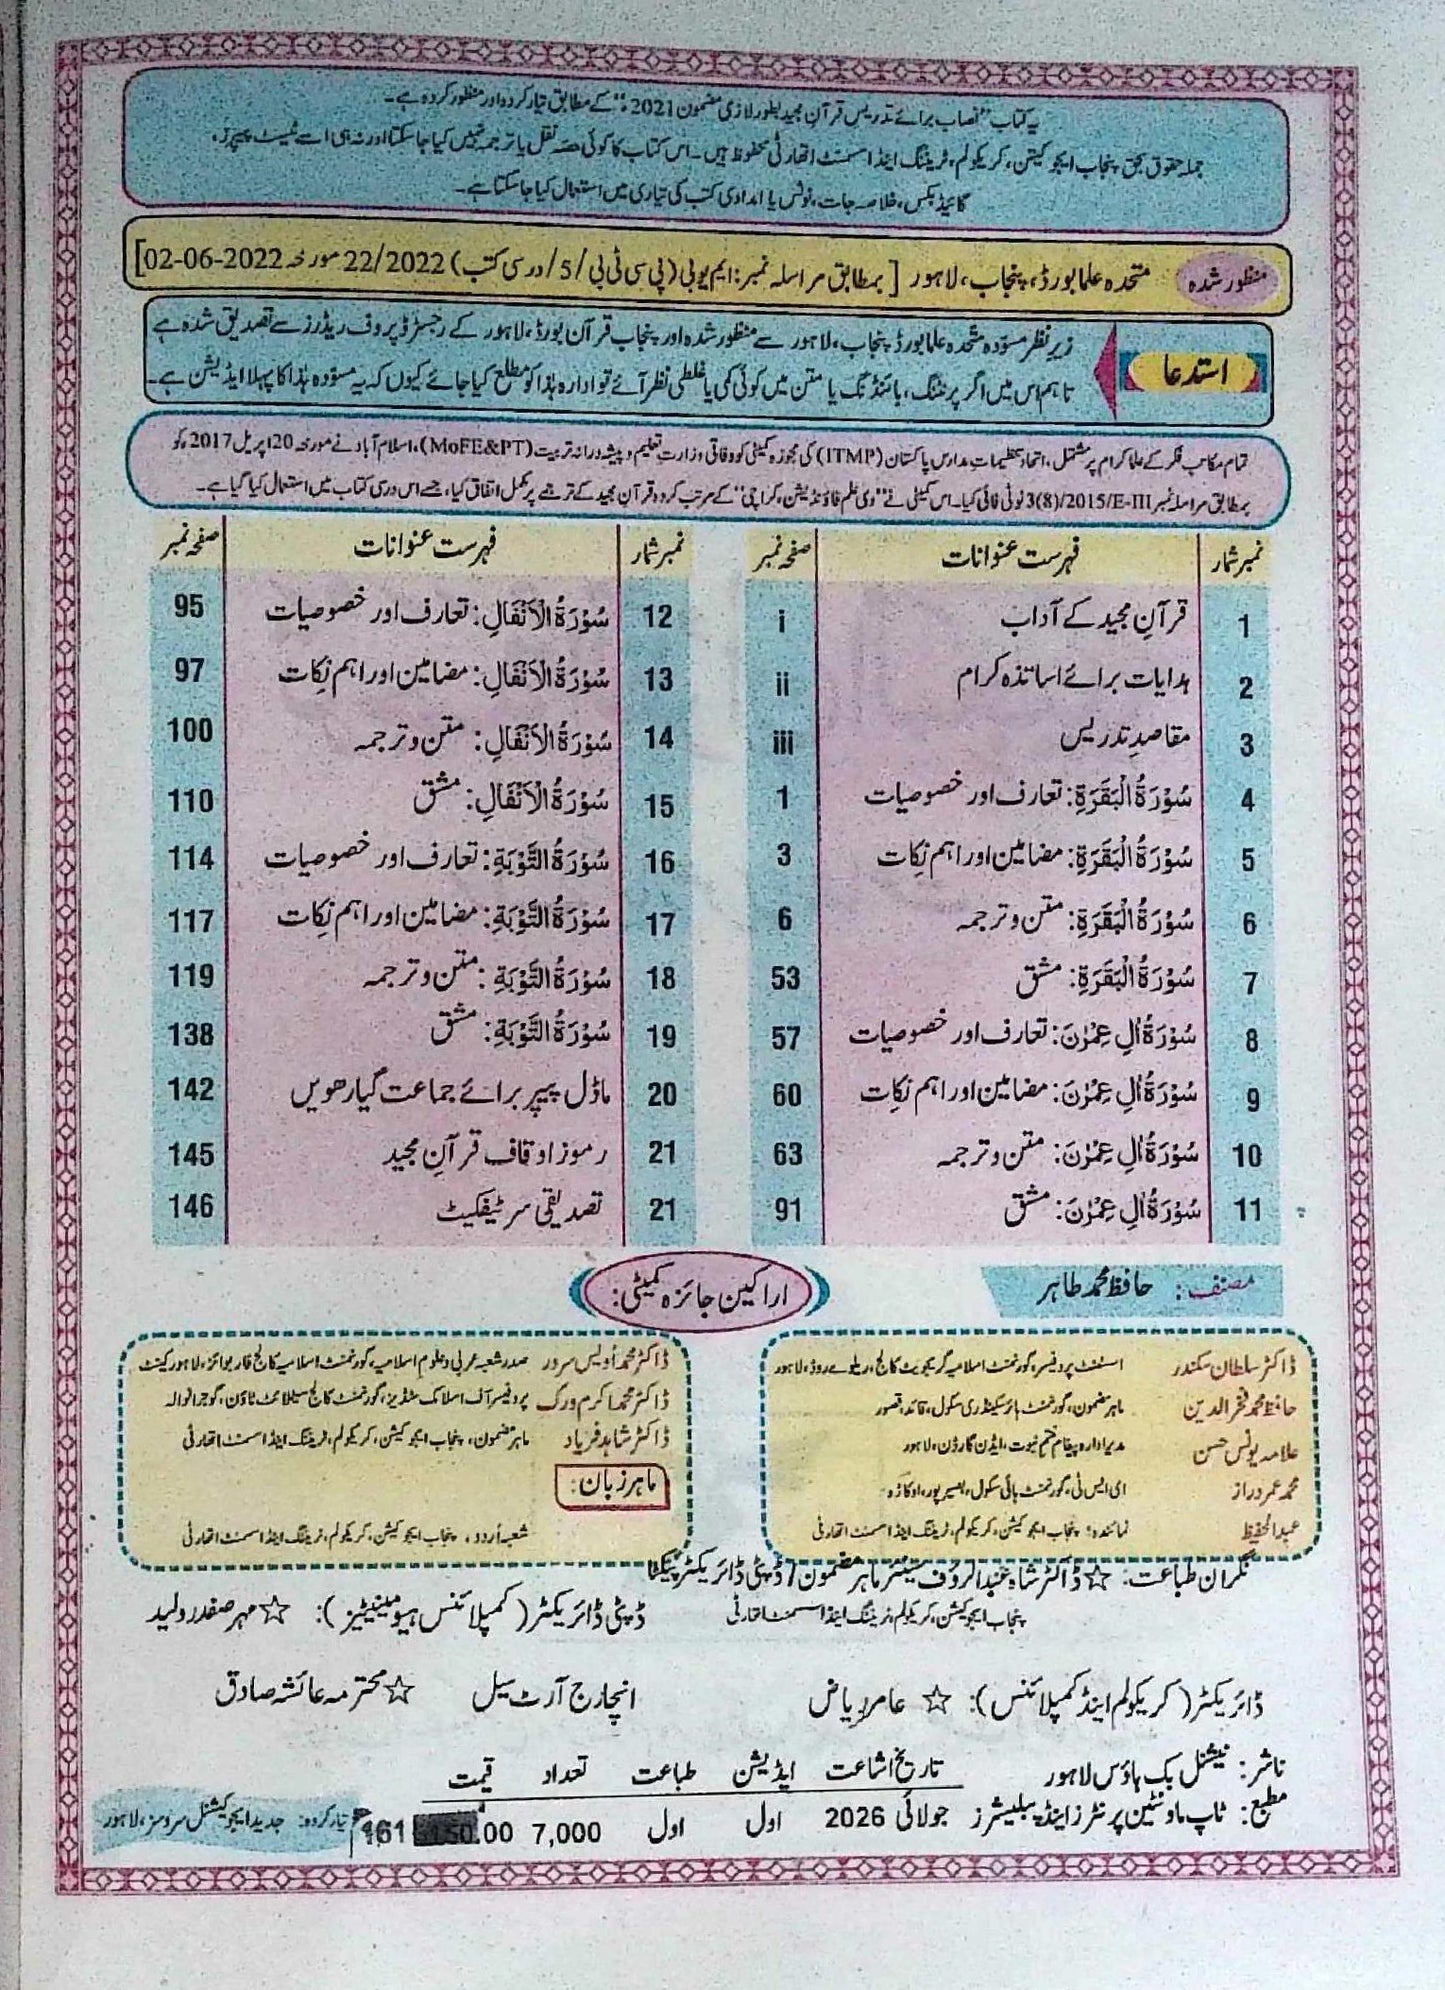 یہ کتاب "نصاب برائے تدریس قرآنِ مجید بطور لازمی مضمون 2021ء" کے مطابق تیار کردہ اور منظور کردہ ہے۔
جملہ حقوق بحق پنجاب ایجوکیشن، کریکولم، ٹریننگ اینڈ اسسمنٹ اتھارٹی محفوظ ہیں۔ اس کتاب کا کوئی حصہ نقل یا ترجمہ نہیں کیا جا سکتا اور نہ ہی اسے ٹیسٹ پیپرز،
گائیڈ بکس، خلاصہ جات، نوٹس یا امدادی کتب کی تیاری میں استعمال کیا جا سکتا ہے۔
منظور شدہ متحدہ علما بورڈ، پنجاب، لاہور [بمطابق مراسلہ نمبر: ایم یو بی (پی سی ٹی بی/5/درسی کتب) 22/2022 مورخہ 02-06-2022]
استدعا
زیرِ نظر مسودہ متحدہ علما بورڈ پنجاب، لاہور سے منظور شدہ اور پنجاب قرآن بورڈ، لاہور کے رجسٹرڈ پروف ریڈرز سے تصدیق شدہ ہے
تاہم اس میں اگر پرنٹنگ، بائنڈنگ یا متن میں کوئی کمی یا غلطی نظر آئے تو ادارہ ہٰذا کو مطلع کیا جائے کیوں کہ یہ مسودہ ہٰذا کا پہلا ایڈیشن ہے۔
تمام مکاتبِ فکر کے علما کرام پر مشتمل، اتحاد تنظیماتِ مدارس پاکستان (ITMP) کی مجوزہ کمیٹی کو وفاقی وزارتِ تعلیم و پیشہ ورانہ تربیت (MoFE&PT)، اسلام آباد نے مورخہ 20 اپریل 2017ء کو
بمطابق مراسلہ نمبر 3(8)/2015/E-III نوٹی فائی کیا۔ اس کمیٹی نے "دی علم فاؤنڈیشن، کراچی" کے مرتب کردہ قرآن مجید کے ترجمے پر مکمل اتفاق کیا، جسے اس درسی کتاب میں استعمال کیا گیا ہے۔
نمبر شمار فہرست عنوانات صفحہ نمبر
1 قرآنِ مجید کے آداب i
2 ہدایات برائے اساتذہ کرام ii
3 مقاصدِ تدریس iii
4 سُوْرَةُ الْبَقَرَةِ: تعارف اور خصوصیات 1
5 سُوْرَةُ الْبَقَرَةِ: مضامین اور اہم نِکات 3
6 سُوْرَةُ الْبَقَرَةِ: متن و ترجمہ 6
7 سُوْرَةُ الْبَقَرَةِ: مشق 53
8 سُوْرَةُ اٰلِ عِمْرٰنَ: تعارف اور خصوصیات 57
9 سُوْرَةُ اٰلِ عِمْرٰنَ: مضامین اور اہم نِکات 60
10 سُوْرَةُ اٰلِ عِمْرٰنَ: متن و ترجمہ 63
11 سُوْرَةُ اٰلِ عِمْرٰنَ: مشق 91
نمبر شمار فہرست عنوانات صفحہ نمبر
12 سُوْرَةُ الْاَنْفَالِ: تعارف اور خصوصیات 95
13 سُوْرَةُ الْاَنْفَالِ: مضامین اور اہم نِکات 97
14 سُوْرَةُ الْاَنْفَالِ: متن و ترجمہ 100
15 سُوْرَةُ الْاَنْفَالِ: مشق 110
16 سُوْرَةُ التَّوْبَةِ: تعارف اور خصوصیات 114
17 سُوْرَةُ التَّوْبَةِ: مضامین اور اہم نِکات 117
18 سُوْرَةُ التَّوْبَةِ: متن و ترجمہ 119
19 سُوْرَةُ التَّوْبَةِ: مشق 138
20 ماڈل پیپر برائے جماعت گیارھویں 142
21 رموز اوقاف قرآنِ مجید 145
21 تصدیقی سرٹیفکیٹ 146
مصنف: حافظ محمد طاہر
اراکین جائزہ کمیٹی:
ڈاکٹر سلطان سکندر اسسٹنٹ پروفیسر، گورنمنٹ اسلامیہ گریجویٹ کالج، ریلوے روڈ، لاہور
حافظ محمد فخر الدین ماہر مضمون، گورنمنٹ ہائر سیکنڈری سکول، قائد، قصور
علامہ یونس حسن مدیر ادارہ پیغام ختم نبوت، ایڈن گارڈن، لاہور
محمد عمر دراز ای ایس ٹی، گورنمنٹ ہائی سکول، بصیر پور، اوکاڑہ
عبدالحفیظ نمائندہ: پنجاب ایجوکیشن، کریکولم، ٹریننگ اینڈ اسسمنٹ اتھارٹی
ڈاکٹر محمد اُویس سرور صدر شعبہ عربی و علوم اسلامیہ، گورنمنٹ اسلامیہ کالج فار بوائز، لاہور کینٹ
ڈاکٹر محمد اکرم ورک پروفیسر آف اسلامک سٹڈیز، گورنمنٹ کالج سیٹلائٹ ٹاؤن، گوجرانوالہ
ڈاکٹر شاہد فریاد ماہر مضمون، پنجاب ایجوکیشن، کریکولم، ٹریننگ اینڈ اسسمنٹ اتھارٹی
ماہر زبان:
شعبہ اُردو، پنجاب ایجوکیشن، کریکولم، ٹریننگ اینڈ اسسمنٹ اتھارٹی
نگران طباعت: ☆ ڈاکٹر شاہ عبدالروف سینئر ماہر مضمون/ڈپٹی ڈائریکٹر پیکٹا
پنجاب ایجوکیشن، کریکولم، ٹریننگ اینڈ اسسمنٹ اتھارٹی
ڈپٹی ڈائریکٹر (کمپلائنس ہیومینیٹیز): ☆ مہر صفدر ولید
ڈائریکٹر (کریکولم اینڈ کمپلائنس): ☆ عامر ریاض
انچارج آرٹ سیل ☆ محترمہ عائشہ صادق
ناشر: نیشنل بک ہاؤس لاہور
مطبع: ٹاپ ماونٹین پرنٹرز اینڈ پبلیشرز
تاریخ اشاعت ایڈیشن طباعت تعداد قیمت
جولائی 2026 اول اول 7,000 161 150.00
تیار کردہ: جدید ایجوکیشنل سروسز، لاہور